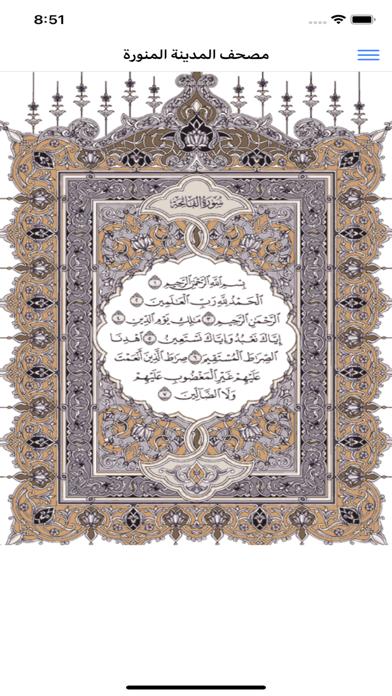 8:51
مصحف المدينة المنورة
سُورَةُ الفَاتِحَةِ
بِسْمِ ٱللَّهِ ٱلرَّحْمَٰنِ ٱلرَّحِيمِ ١
ٱلْحَمْدُ لِلَّهِ رَبِّ ٱلْعَٰلَمِينَ ٢
ٱلرَّحْمَٰنِ ٱلرَّحِيمِ ٣ مَٰلِكِ يَوْمِ ٱلدِّينِ ٤
إِيَّاكَ نَعْبُدُ وَإِيَّاكَ نَسْتَعِينُ ٥ ٱهْدِنَا
ٱلصِّرَٰطَ ٱلْمُسْتَقِيمَ ٦ صِرَٰطَ ٱلَّذِينَ أَنْعَمْتَ
عَلَيْهِمْ غَيْرِ ٱلْمَغْضُوبِ عَلَيْهِمْ
وَلَا ٱلضَّآلِّينَ ٧